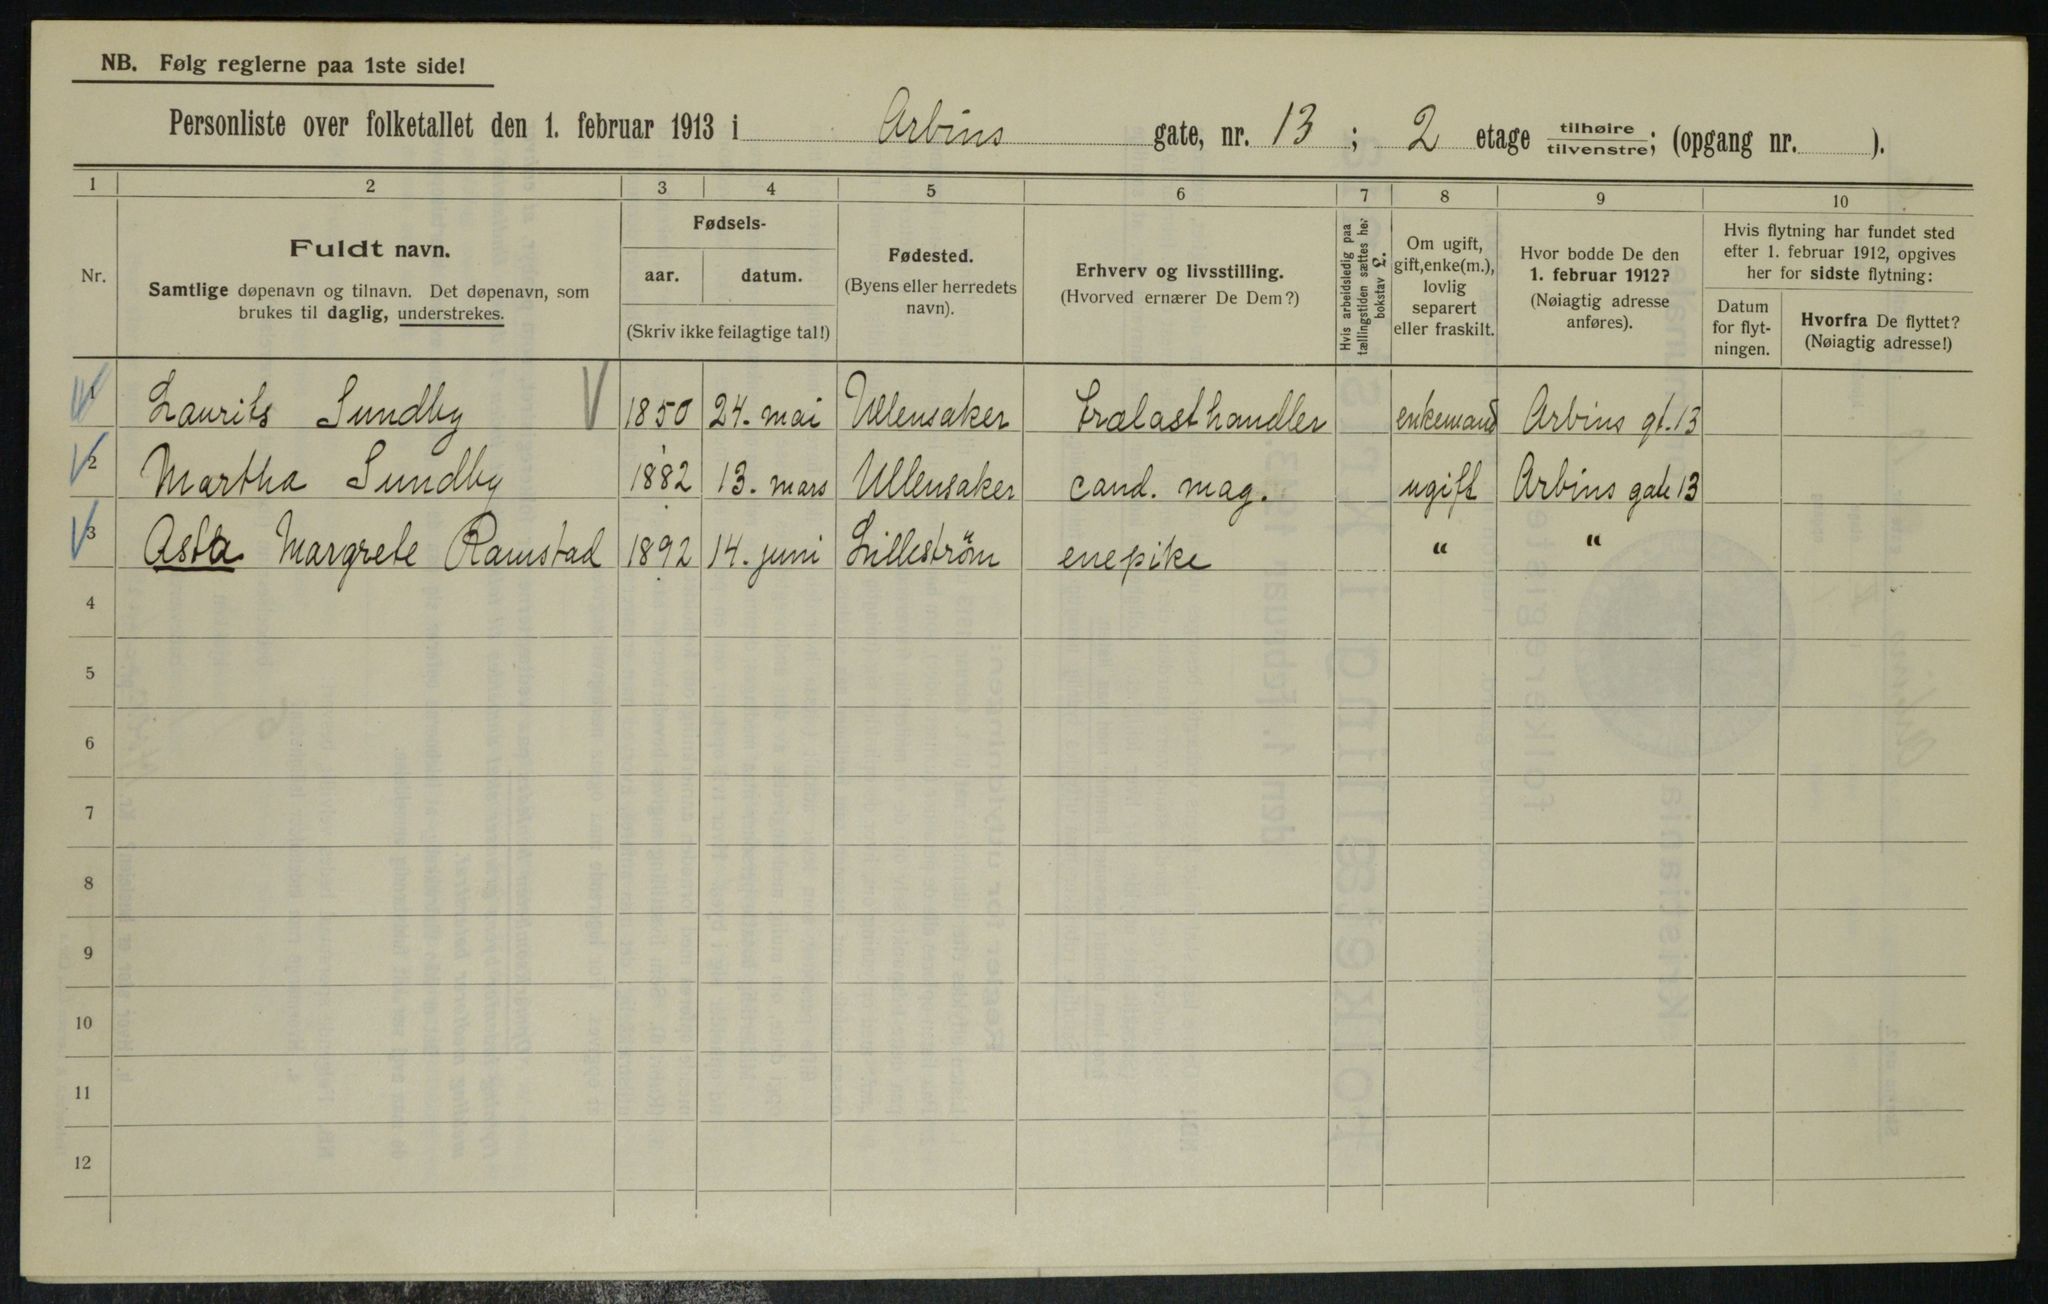 NB. Følg reglerne paa 1ste side!
Personliste over folketallet den 1. februar 1913 i Arbins gate, nr. 13 ; 2 etage tilhøire tilvenstre; (opgang nr. ).
1 2 3 4 5 6 7 8 9 10
Nr.
Fuldt navn.
Samtlige døpenavn og tilnavn. Det døpenavn, som
brukes til daglig, understrekes.
Fødsels-
aar. datum.
(Skriv ikke feilagtige tal!)
Fødested.
(Byens eller herredets
navn).
Erhverv og livsstilling.
(Hvorved ernærer De Dem?)
Hvis arbeidsledig paa
tællingstiden sættes her
bokstav L.
Om ugift,
gift, enke(m.),
lovlig
separert
eller fraskilt.
Hvor bodde De den
1. februar 1912?
(Nøiagtig adresse
anføres).
Hvis flytning har fundet sted
efter 1. februar 1912, opgives
her for sidste flytning:
Datum
for flyt-
ningen.
Hvorfra De flyttet?
(Nøiagtig adresse!)
1 Laurits Sundby 1850 24. mai Ullensaker Trælasthandler enkemand Arbins gt. 13
2 Martha Sundby 1882 13. mars Ullensaker cand. mag. ugift Arbins gate 13
3 Asta Margrete Ramstad 1892 14. juni Lillestrøm enepike " "
4
5
6
7
8
9
10
11
12